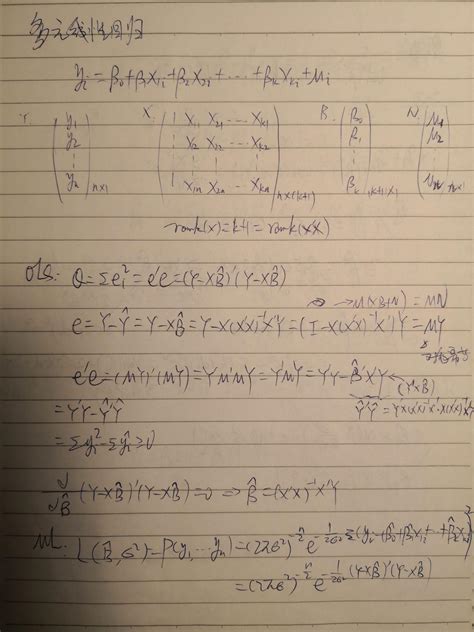 多元线性回归
yᵢ = β₀+β₁X₁ᵢ+β₂X₂ᵢ+⋯+βₖXₖᵢ+μᵢ
Y. (y₁ y₂ ⋮ yₙ)ₙₓ₁ X. (1 X₁₁ X₂₁ ⋯ Xₖ₁ ; 1 X₁₂ X₂₂ ⋯ Xₖ₂ ; ⋮ ; 1 X₁ₙ X₂ₙ ⋯ Xₖₙ)ₙₓ₍ₖ₊₁₎ B. (β₀ β₁ ⋮ βₖ)₍ₖ₊₁₎ₓ₁ N. (μ₁ μ₂ ⋮ μₙ)ₙₓ₁
rank(X)=k+1=rank(X'X)
OLS: Q=Σeᵢ²=e'e=(Y-XB̂)'(Y-XB̂)
→M(XB+N)=MN
e=Y-Ŷ=Y-XB̂=Y-X(X'X)⁻¹X'Y=(I-X(X'X)⁻¹X')Y=MY
e'e=(MY)'(MY)=Y'M'MY=Y'MY=Y'Y-B̂'X'Y ←(Y'XB̂)
=Y'Y-Ŷ'Ŷ Ŷ'Ŷ=Y'X(X'X)⁻¹X'·X(X'X)⁻¹X'Y
=Σyᵢ²-Σŷᵢ²≥0
∂/∂B̂ (Y-XB̂)'(Y-XB̂)=0 ⇒ B̂=(X'X)⁻¹X'Y
ML: L(B̂,σ²)=P(y₁,⋯yₙ)=(2πσ²)^(-n/2) e^(-1/2σ² Σ(yᵢ-(β̂₀+β̂₁X₁ᵢ+⋯+β̂ₖXₖᵢ))²)
=(2πσ²)^(-n/2) e^(-1/2σ² (Y-XB̂)'(Y-XB̂))